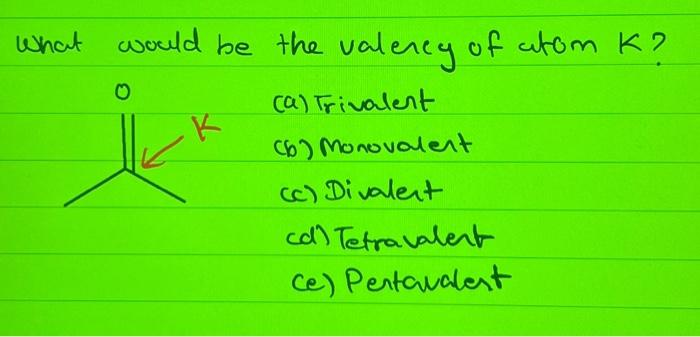 What would be the valency of atom K?
O
K
(a) Trivalent
(b) Monovalent
(c) Divalent
(d) Tetravalent
(e) Pentavalent